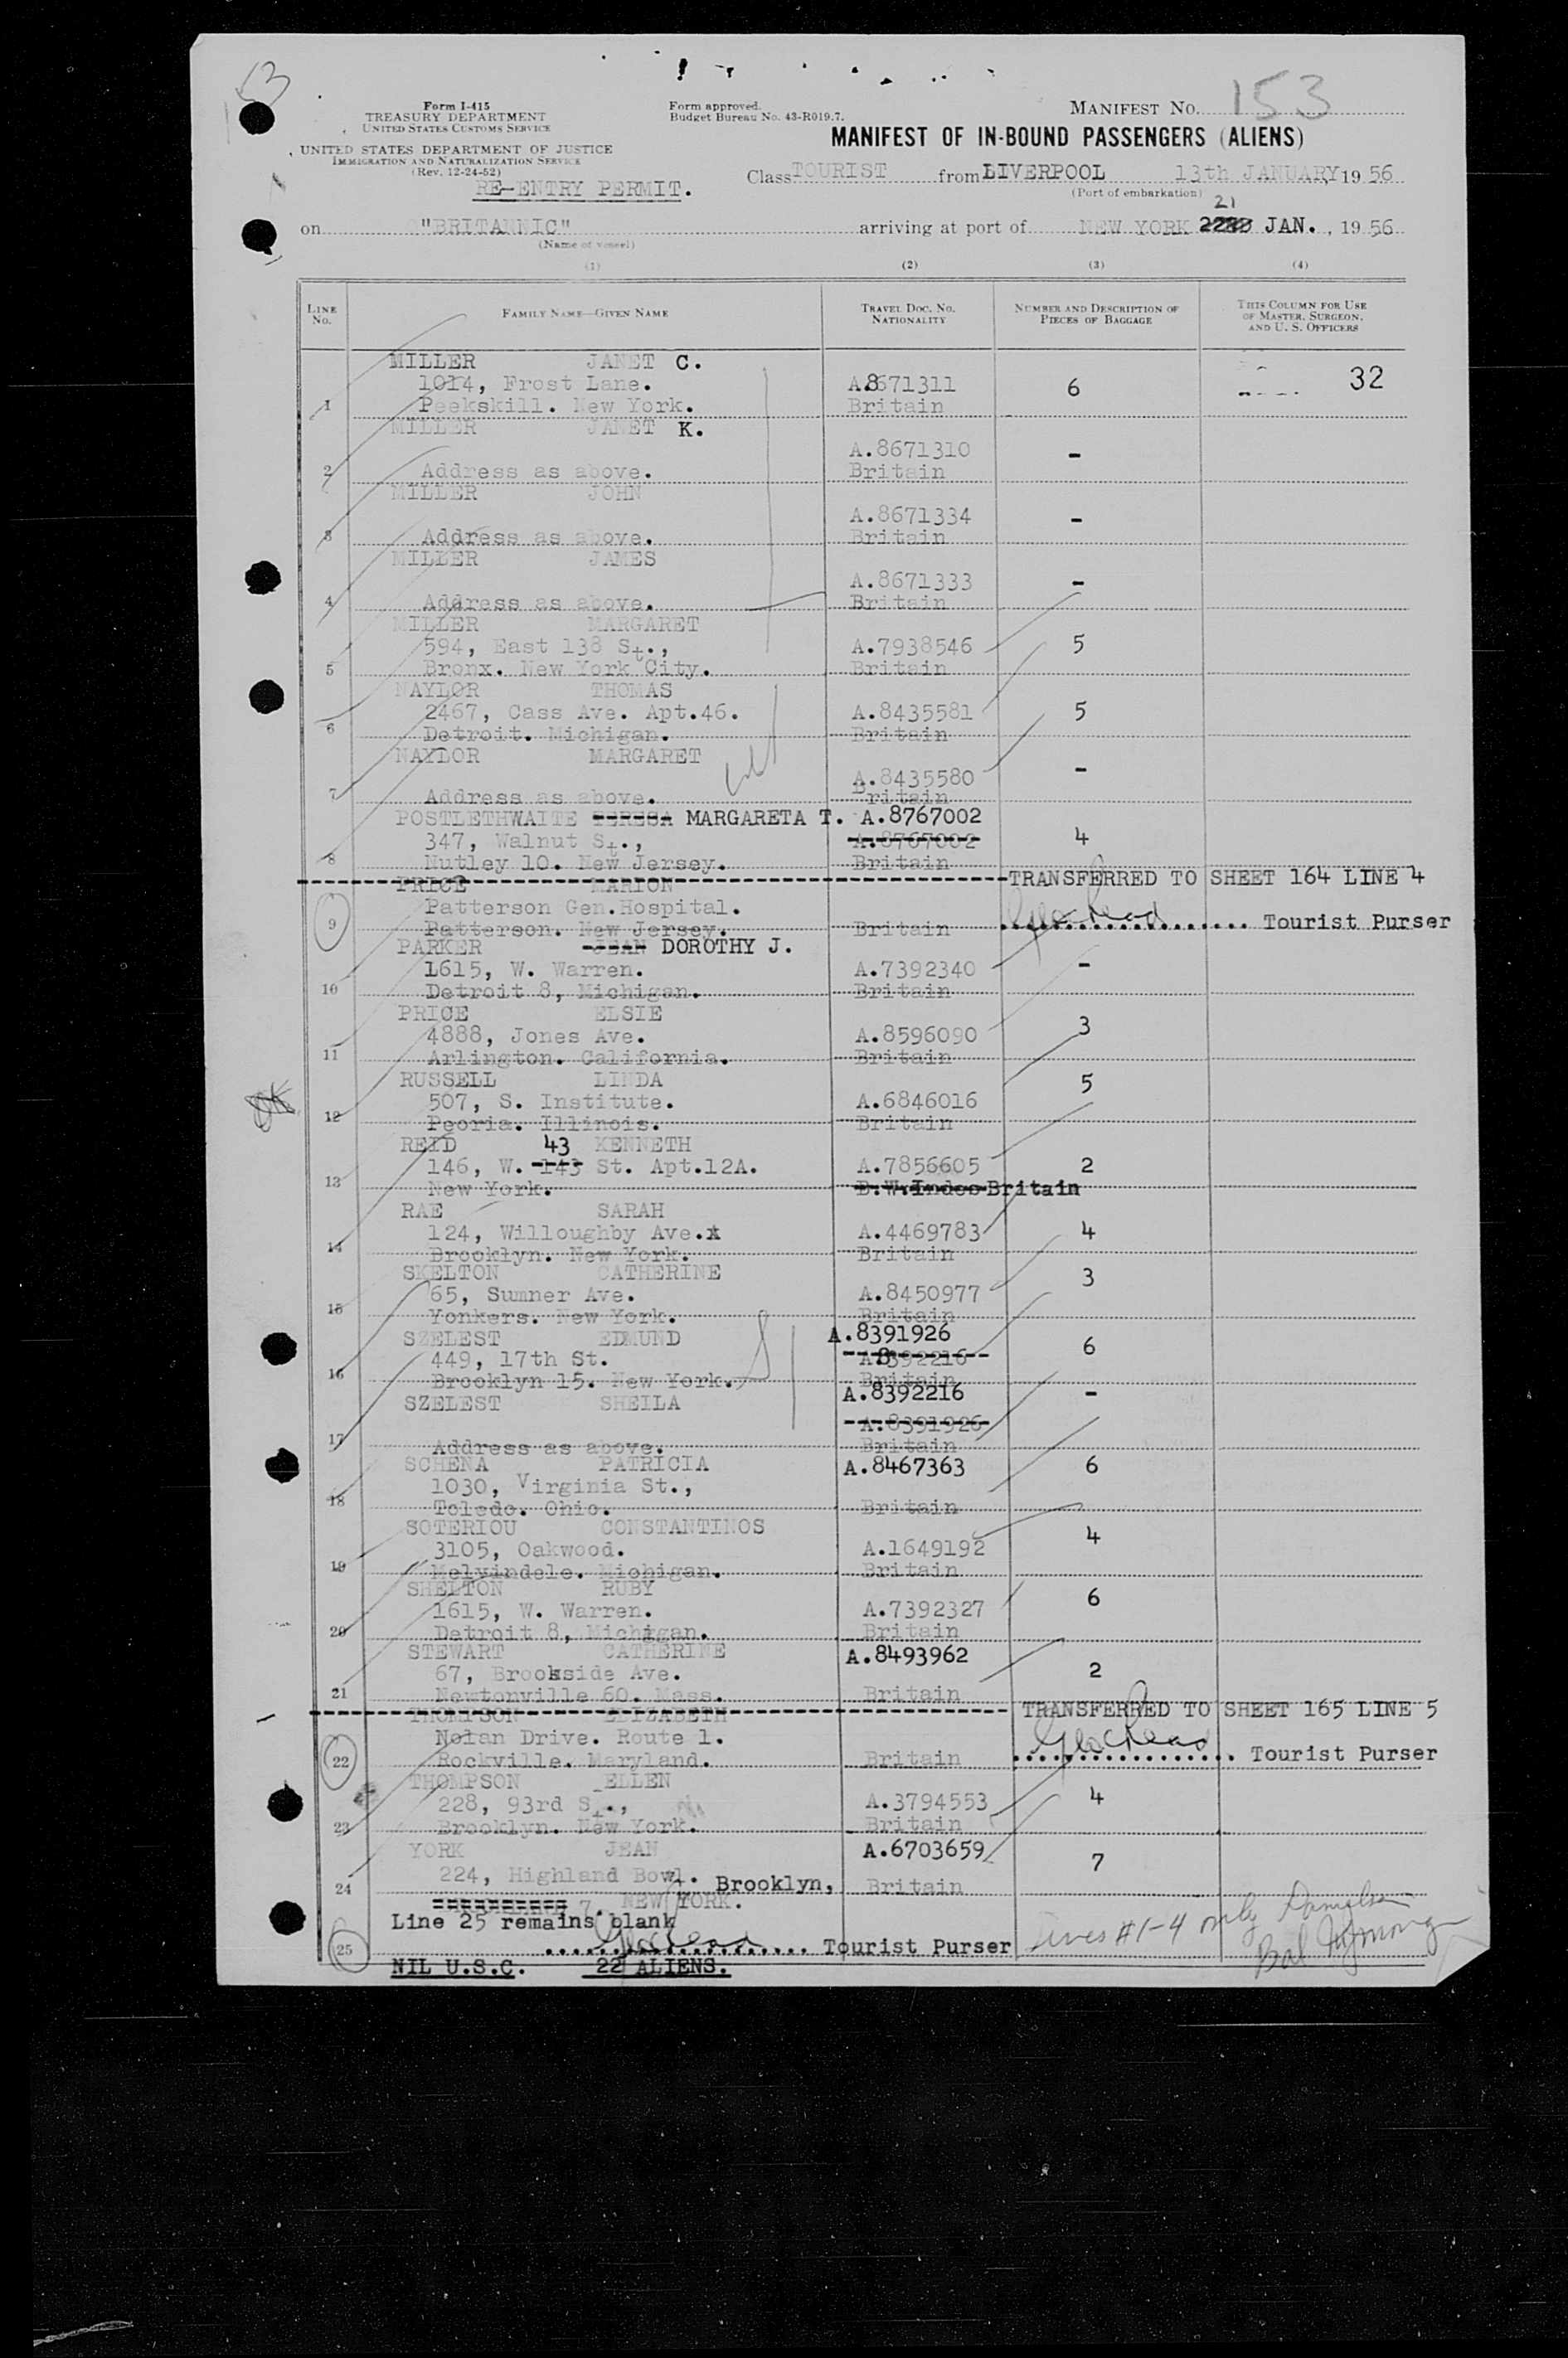 153
Form I-415
TREASURY DEPARTMENT
UNITED STATES CUSTOMS SERVICE
UNITED STATES DEPARTMENT OF JUSTICE
IMMIGRATION AND NATURALIZATION SERVICE
(Rev. 12-24-52)
RE-ENTRY PERMIT.
Form approved.
Budget Bureau No. 43-R019.7.
MANIFEST NO. 153
MANIFEST OF IN-BOUND PASSENGERS (ALIENS)
Class TOURIST from LIVERPOOL 13th JANUARY, 19 56
(Port of embarkation)
21
on "BRITANNIC" arriving at port of NEW YORK JAN., 19 56
(Name of vessel)
(1) (2) (3) (4)
LINE No. FAMILY NAME—GIVEN NAME TRAVEL DOC. NO. NATIONALITY NUMBER AND DESCRIPTION OF PIECES OF BAGGAGE THIS COLUMN FOR USE OF MASTER, SURGEON, AND U. S. OFFICERS
MILLER JANET C.
1014, Frost Lane. A.8671311 6 32
1 Peekskill. New York. Britain
MILLER JANET K.
A.8671310 -
2 Address as above. Britain
MILLER JOHN
A.8671334 -
3 Address as above. Britain
MILLER JAMES
A.8671333 -
4 Address as above. Britain
MILLER MARGARET
594, East 138 St., A.7938546 5
5 Bronx. New York City. Britain
NAYLOR THOMAS
2467, Cass Ave. Apt.46. A.8435581 5
6 Detroit. Michigan. Britain
NAYLOR MARGARET
A.8435580 -
7 Address as above. Britain
POSTLETHWAITE TERESA MARGARETA T. A.8767002
347, Walnut St., A.8767002 4
8 Nutley 10. New Jersey. Britain
PRICE MARION TRANSFERRED TO SHEET 164 LINE 4
Patterson Gen.Hospital.
9 Patterson. New Jersey. Britain Tourist Purser
PARKER JEAN DOROTHY J.
1615, W. Warren. A.7392340 -
10 Detroit 8, Michigan. Britain
PRICE ELSIE
4888, Jones Ave. A.8596090 3
11 Arlington. California. Britain
RUSSELL LINDA
507, S. Institute. A.6846016 5
12 Peoria. Illinois. Britain
REID 43 KENNETH
146, W. 143 St. Apt.12A. A.7856605 2
13 New York. B.W.Indes Britain
RAE SARAH
124, Willoughby Ave.x A.4469783 4
14 Brooklyn. New York. Britain
SKELTON CATHERINE
65, Sumner Ave. A.8450977 3
15 Yonkers. New York. Britain
SZELEST EDMUND A.8391926
449, 17th St. A8392216 6
16 Brooklyn 15. New York. Britain
SZELEST SHEILA A.8392216 -
A.8391926
17 Address as above. Britain
SCHENA PATRICIA A.8467363 6
1030, Virginia St.,
18 Toledo. Ohio. Britain
SOTERIOU CONSTANTINOS
3105, Oakwood. A.1649192 4
19 Melvindele. Michigan. Britain
SHELTON RUBY
1615, W. Warren. A.7392327 6
20 Detroit 8, Michigan. Britain
STEWART CATHERINE A.8493962
67, Brookside Ave. 2
21 Newtonville 60. Mass. Britain
THOMPSON ELIZABETH TRANSFERRED TO SHEET 165 LINE 5
Nolan Drive. Route 1.
22 Rockville. Maryland. Britain Tourist Purser
THOMPSON ELLEN
228, 93rd St., A.3794553 4
23 Brooklyn. New York. Britain
YORK JEAN A.6703659
224, Highland Bowl. Brooklyn, 7
24 Britain
7. NEW YORK.
Line 25 remains blank
25 Tourist Purser Lines #1-4 only
NIL U.S.C. 22 ALIENS.